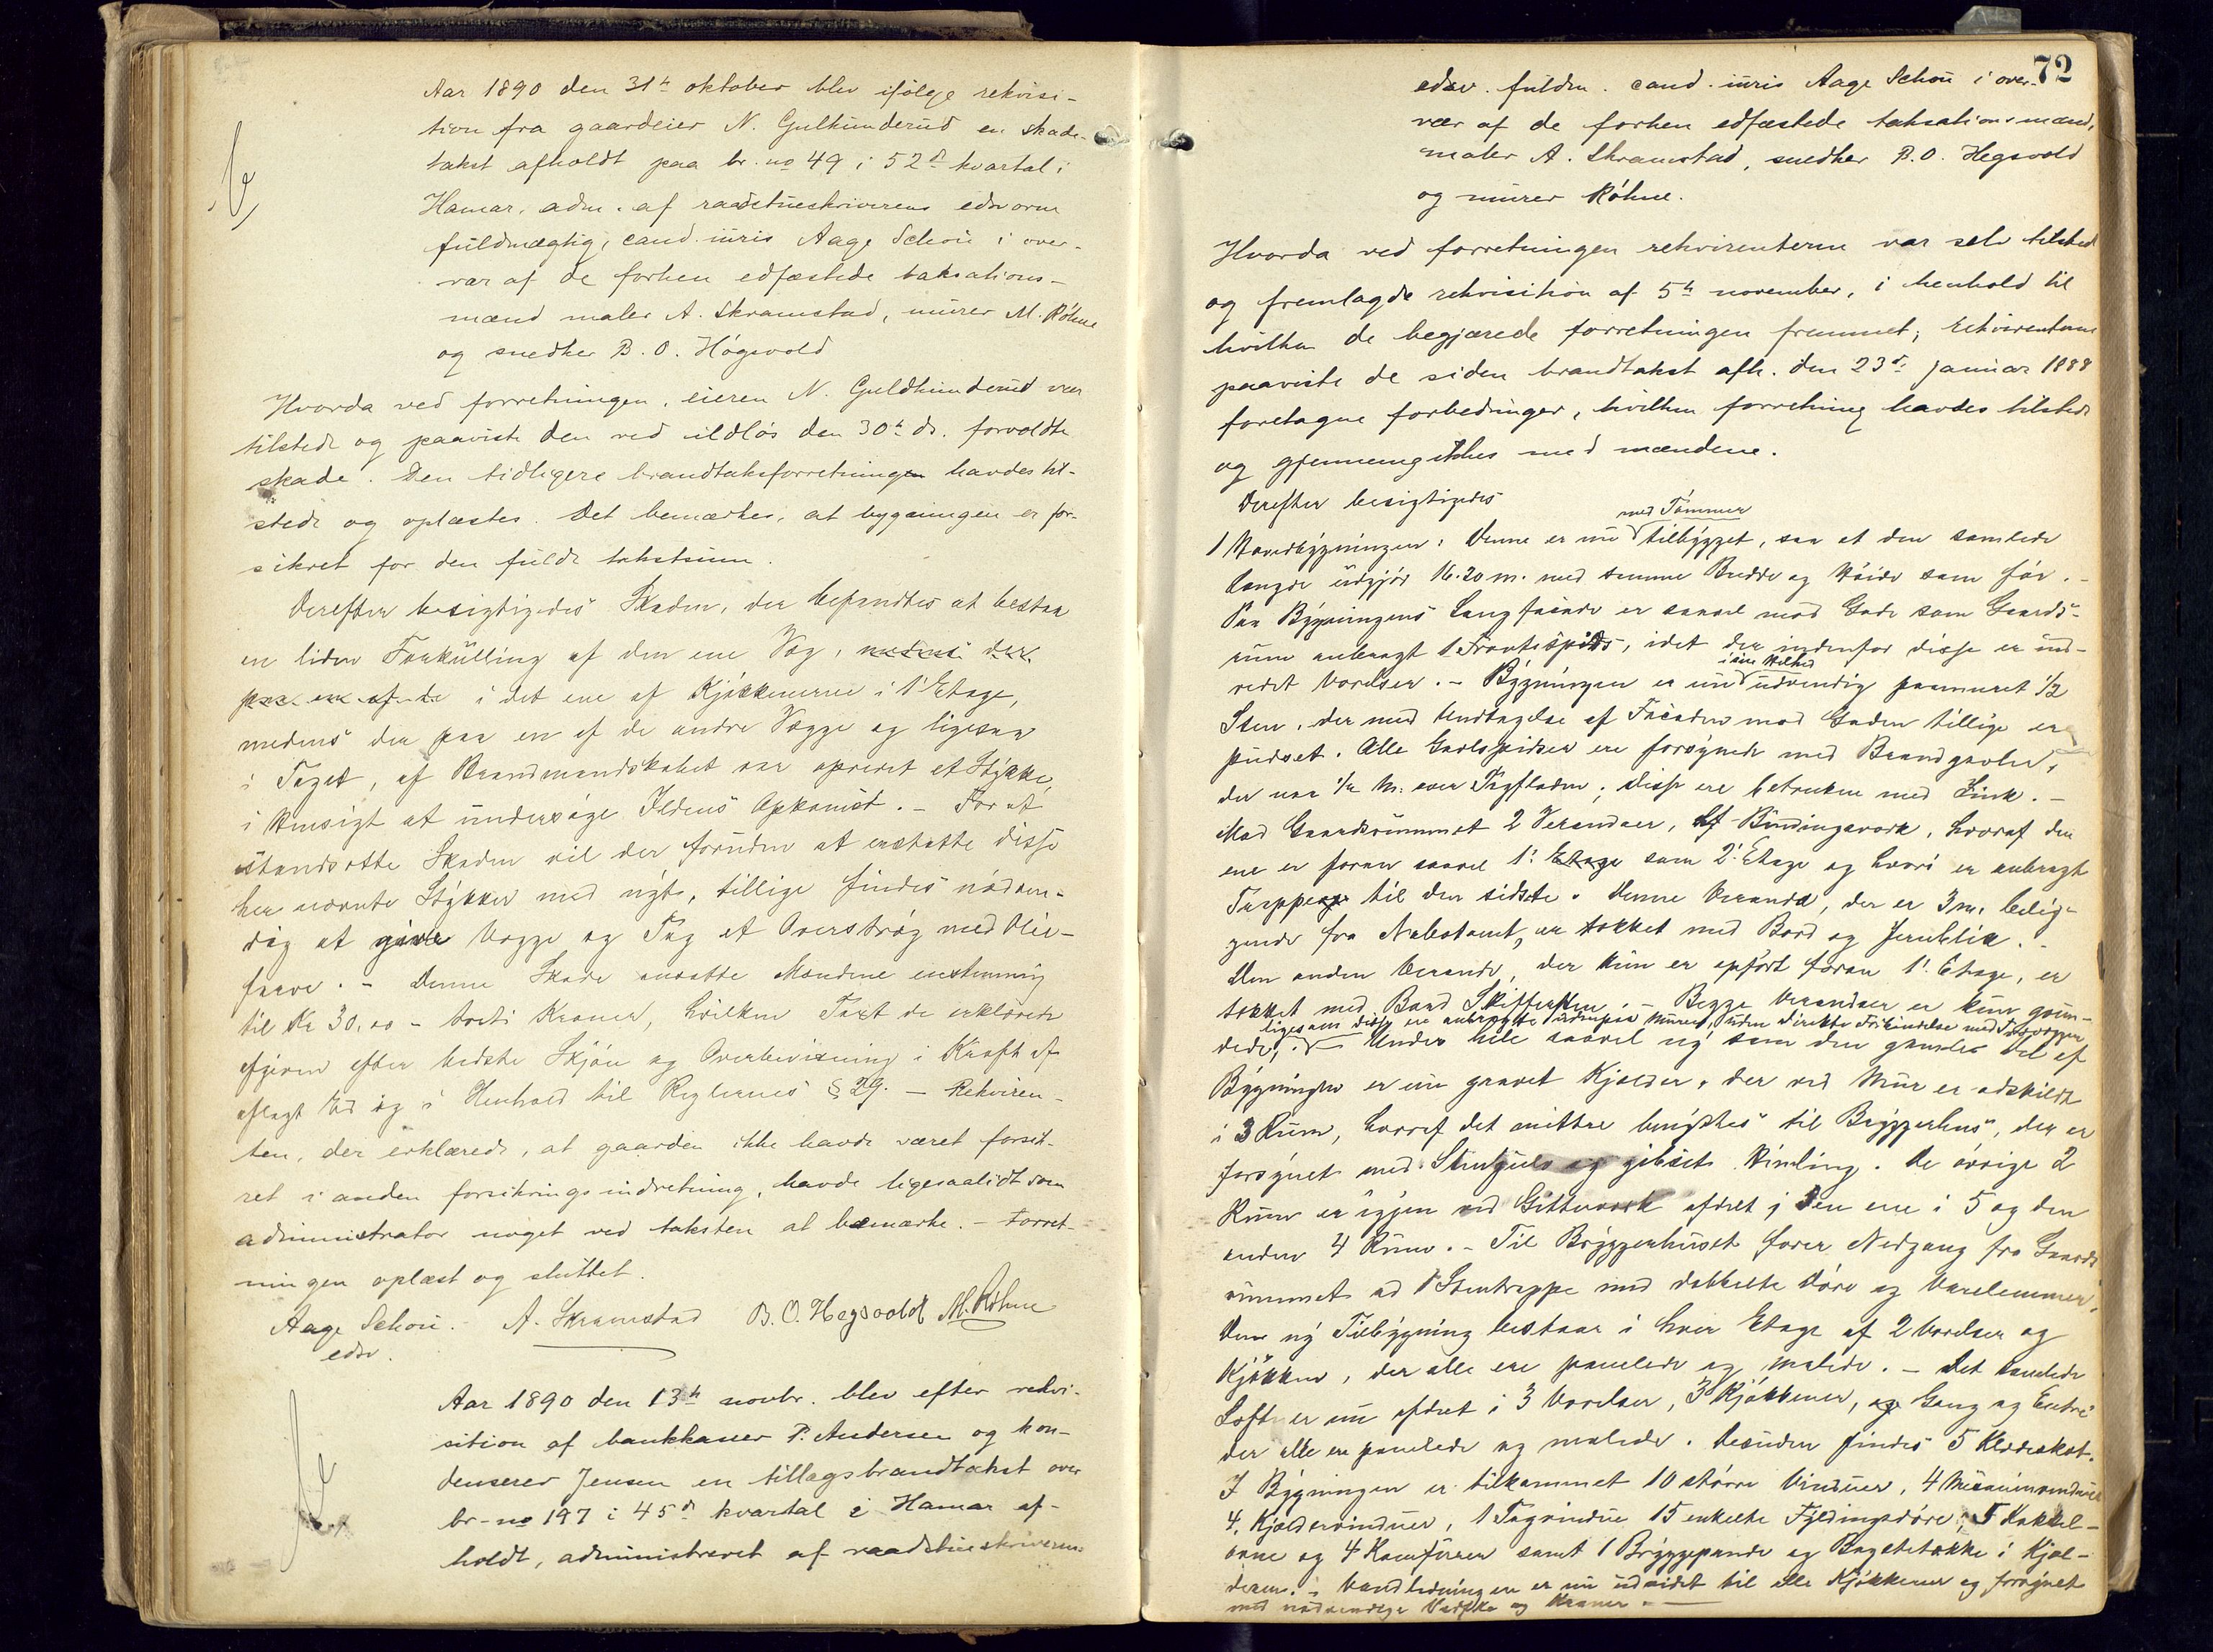 Aar 1890 den 31te oktober blev ifölge rekvisi-
tion fra gaardeier N. Gulhunderud en skade-
takst afholdt paa br. no 49 i 52de kvartal i
Hamar, adm. af raadstueskriverens edsvorne
fuldmægtig, cand. iuris Aage Schou i over-
vær af de forhen edfæstede taksations-
mænd maler A. Skramstad, murer M. Röhne
og snedker B. O. Högsvold
Hvorda ved forretningen, eieren N. Guldhunderud var
tilstede og paaviste den ved ildlös den 30te ds. forvoldte
skade. Den tidligere brandtaksforretningen havdes til-
stede og oplæstes. Det bemærkes, at bygningen er for-
sikret for den fulde takstsum.
Derefter besigtigedes Skaden, der befandtes at bestaa
en liden Forkulling af den ene Væg, medens der
paa en af de i det ene af Kjökkenerne i 1' Etage,
medens der paa en af de andre Vægge og ligesaa
i Taget, af Brandmandskabet var oprevet et Stykke,
i Hensigt at undersöge Ildens Opkomst. – For at
istandsætte Skaden vil der foruden at erstatte disse
her nævnte Stykker med nyt, tillige findes nödven-
dig at give Vægge og Tag et Overströg med Olie-
farve. – Denne Skade ansatte Mændene enstemmig
til Kr 30,00 – tredi Kroner, hvilken Taxt de erklærede
afgiven efter bedste Skjön og Overbevisning i Kraft af
aflagt Ed og i Henhold til Reglernes § 29. – Rekviren-
ten, der erklærede, at gaarden ikke havde været forsik-
ret i anden forsikringsindretning, havde ligesaalidt som
administrator noget ved taksten at bemærke. – Forret-
ningen oplæst og sluttet.
Aage Schou. A. Skramstad B. O. Hegsvold M. Röhne
edsv.
Aar 1890 den 13de novbr. blev efter rekvi-
sition af bankkasser P. Andersen og kon-
denserer Jensen en tillægsbrandtakst over
br-no 197 i 45de kvartal i Hamar af-
holdt, administreret af raadstueskriverens
72
edsv. fuldm. cand. iuris Aage Schou i over-
vær af de forhen edfæstede taksationsmænd,
maler A. Skramstad, snedker B. O. Hegsvold
og murer Röhne.
Hvorda ved forretningen rekvirenterne var selv tilstede
og fremlagde rekvisition af 5te november, i henhold til
hvilken de begjærede forretningen fremmet; rekvirenterne
paaviste de siden brandtakst afh. den 23de januar 1888
foretagne forbedringer, hvilken forretning havdes tilstede
og gjennemgikkes med mændene.
Derefter besigtigedes
med Tömmer
1 Hovedbygningen: Denne er nu tilbygget, saa at den samlede
Længde udgjör 16.20 m. med samme Bredde og Höide som för. –
Paa Bygningens Langfacade er saavel mod Gade som Gaards-
rum anbragt 1 Frontespids, idet der indenfor disse er ind-
i sin Helhed
redet Værelser. – Bygningen er nu udvendig paamuret 1/2
Sten, der med Undtagelse af Facaden mod Gaden tillige er
pudset. Alle Gavlspidser ere forsynede med Brandgavler,
der naa 1/2 m. over Tagfladen; disse ere betrukne med Zink. –
Mod Gaardsrummet 2 Verandaer, af Bindingsverk, hvoraf den
ene er foran saavel 1' Etage som 2' Etage og hvori er anbragt
Trappe til den sidste. Denne Veranda, der er 3 m. belig-
gende fra Nabotomt, er tækket med Bord og Jernblik. –
Den anden Veranda, der kun er opfört foran 1' Etage, er
tækket med Bord Skiffersten. – Begge Verandaer er kun grun-
ligesom disse ere anbragte udenpaa Muren, uden direkte Forbindelse med Trævæggen
dede, . Under hele saavel ny som den gamle Del af
Bygningen er nu gravet Kjælder, der ved Mur er adskildt
i 3 Rum, hvoraf det mittre benyttes til Bryggerhus, der er
forsynet med Stengulv og gibset Himling. De övrige 2
Rum er igjen ved Gitterverk afdelt i den ene i 5 og den
anden 4 Rum. – Til Bryggerhuset förer Nedgang fra Gaards-
rummet ad 1 Stentrappe med dobbelte Döre og Varelemmer.
Den ny Tilbygning bestaar i hver Etage af 2 Værelser og
Kjökken, der alle ere panelede og malede. – Det samlede
Loft er nu afdelt i 3 Værelser, 3 Kjökkener, og Gang og Entre
der alle ere panelede og malede. Desuden findes 5 Klædeskot.
I Bygningen er tilkommet 10 större Vinduer, 4 Mesaninvinduer
4, Kjældervinduer, 1 Tagvindue 15 enkelte Fyldingsdöre, 5 Kakkel-
ovne og 4 Komfurer samt 1 Bryggepande og Bagstetakke i Kjæl-
deren. – Vandledningen er nu udvidet til alle Kjökkener og forsynet
med nödvendige Vaske og Kraner. –